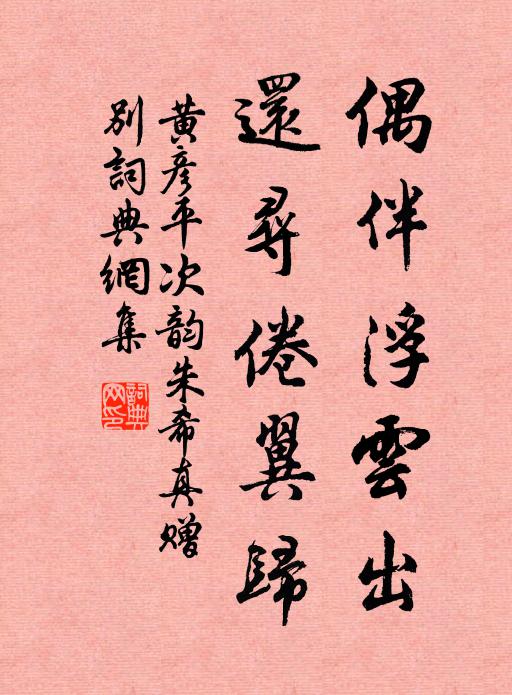 偶伴浮雲出
還尋倦翼歸
黃彦平次韵朱希真贈
别詞典網集
詞典網印